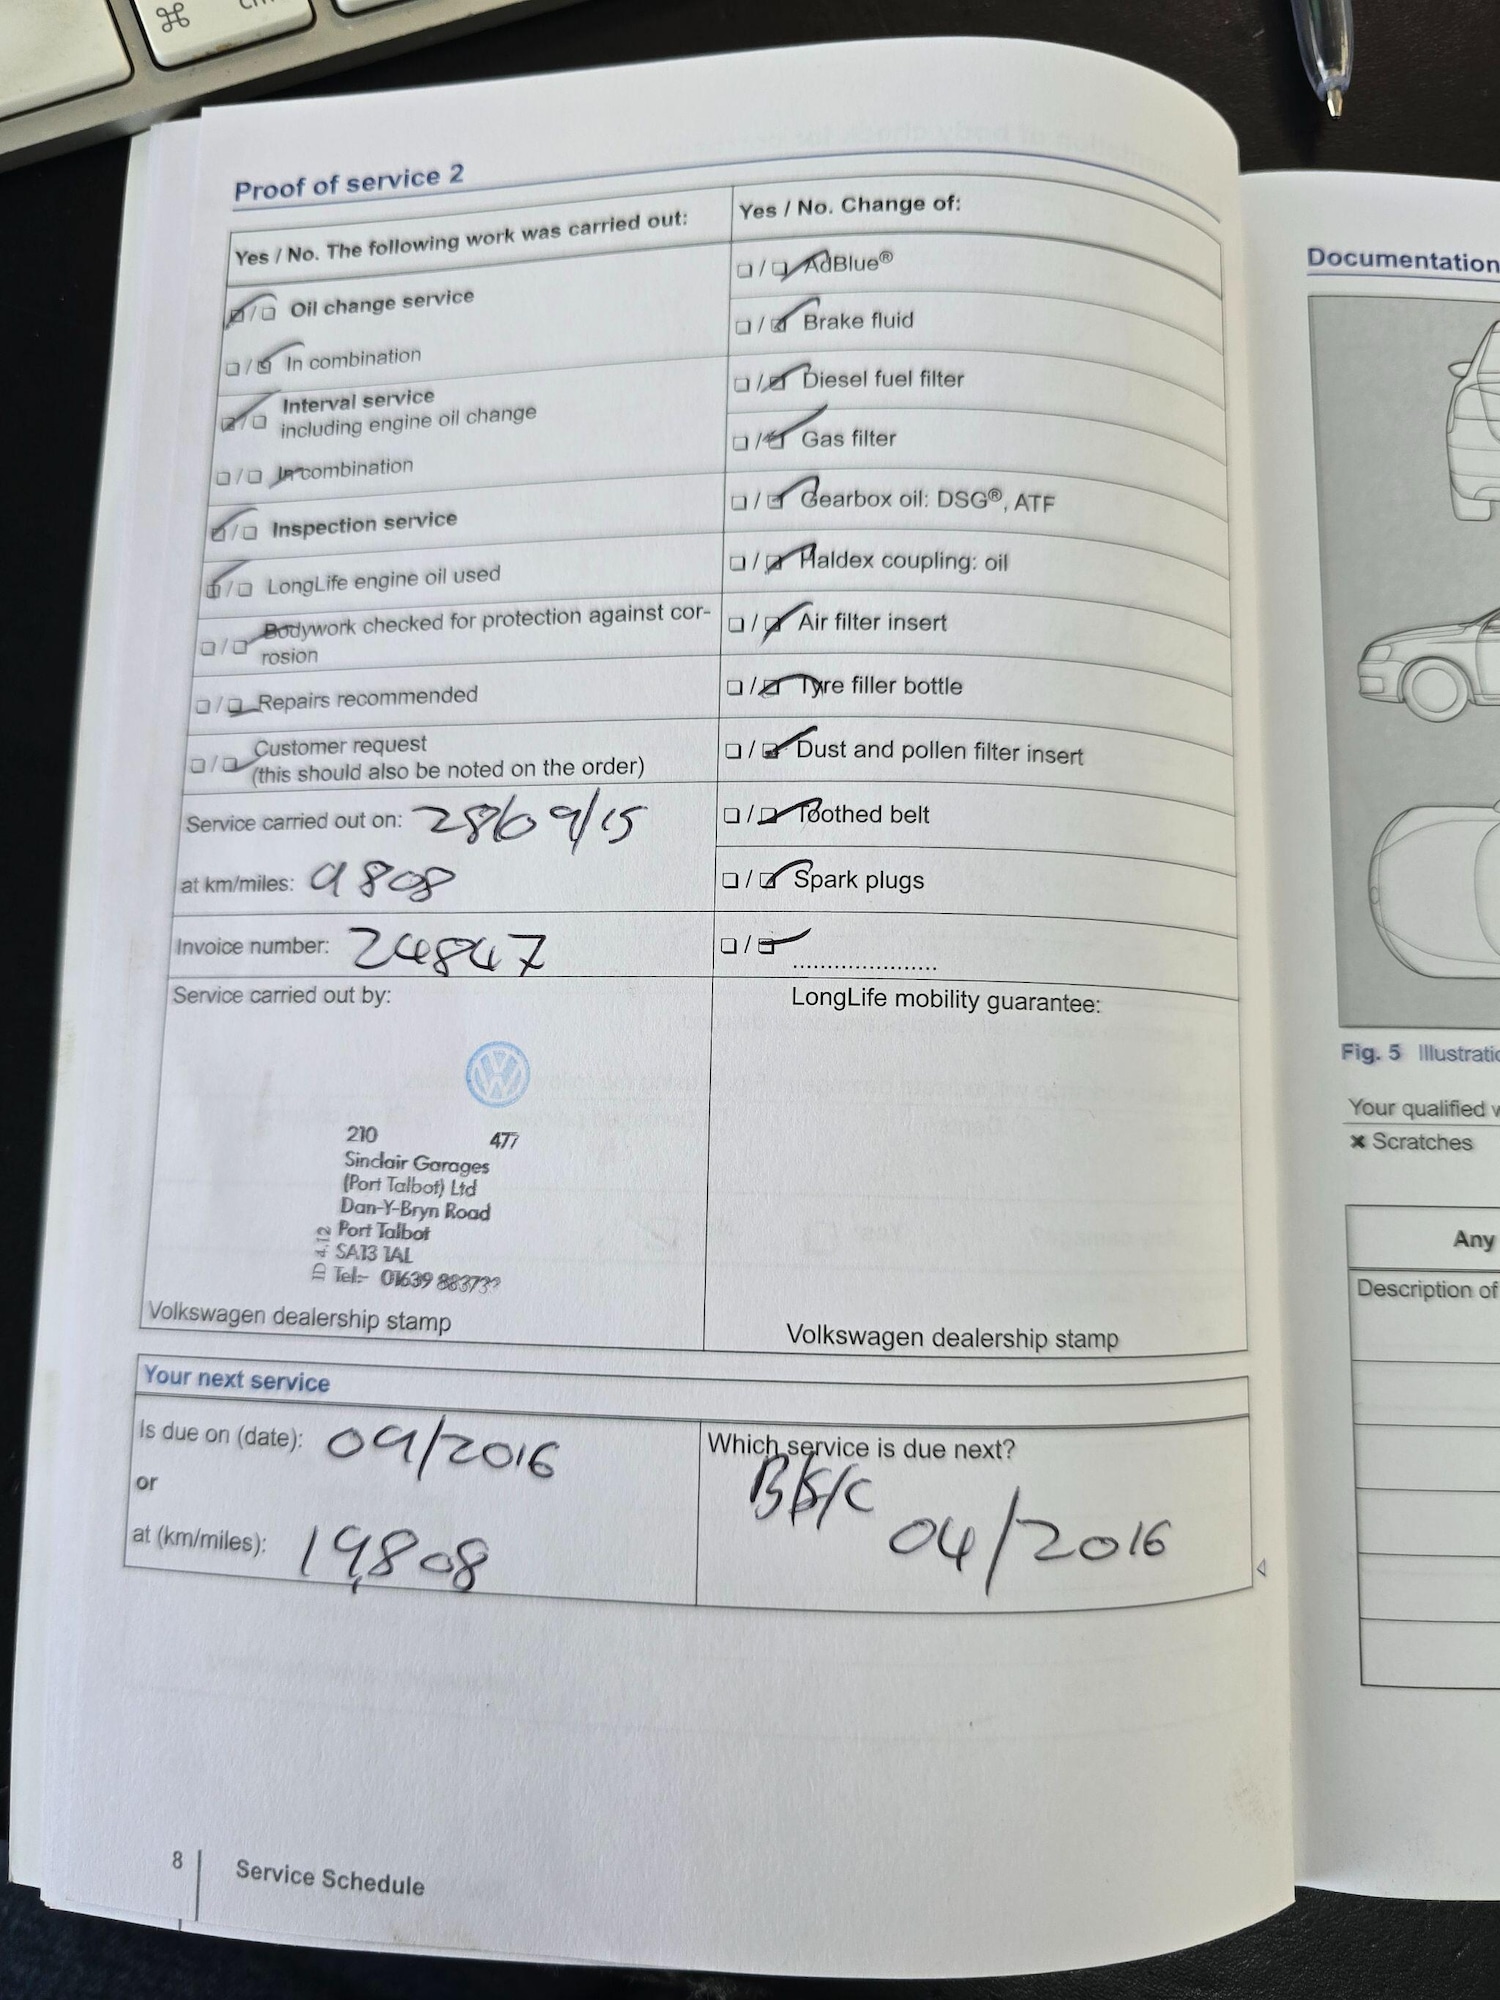 ⌘
Proof of service 2
Yes / No. The following work was carried out:
Oil change service
In combination
Interval service
including engine oil change
In combination
Inspection service
LongLife engine oil used
Bodywork checked for protection against cor-
rosion
Repairs recommended
Customer request
(this should also be noted on the order)
Service carried out on: 28/09/15
at km/miles: 9808
Invoice number: 24847
Service carried out by:
210 477
Sinclair Garages
(Port Talbot) Ltd
Dan-Y-Bryn Road
Port Talbot
SA13 1AL
Tel:- 01639
ID 4.12
Volkswagen dealership stamp
Yes / No. Change of:
AdBlue®
Brake fluid
Diesel fuel filter
Gas filter
Gearbox oil: DSG®, ATF
Haldex coupling: oil
Air filter insert
Tyre filler bottle
Dust and pollen filter insert
Toothed belt
Spark plugs
LongLife mobility guarantee:
Volkswagen dealership stamp
Your next service
Is due on (date): 09/2016
or
at (km/miles): 19,808
Which service is due next?
04/2016
8 Service Schedule
Documentation
Fig. 5
Your qualified
✖ Scratches
Any
Description of